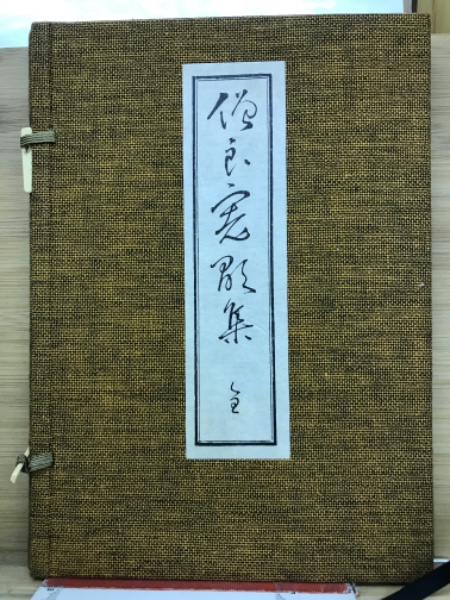 僧良寛歌集 全